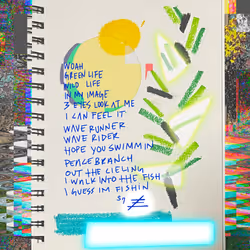 WOAH
GREEN LIFE
WILD LIFE
IN MY IMAGE
3 EYES LOOK AT ME
I CAN FEEL IT
WAVE RUNNER
WAVE RIDER
HOPE YOU SWIMMIN
PEACE BRANCH
OUT THE CIELING
I WALK INTO THE FISH
I GUESS IM FISHIN